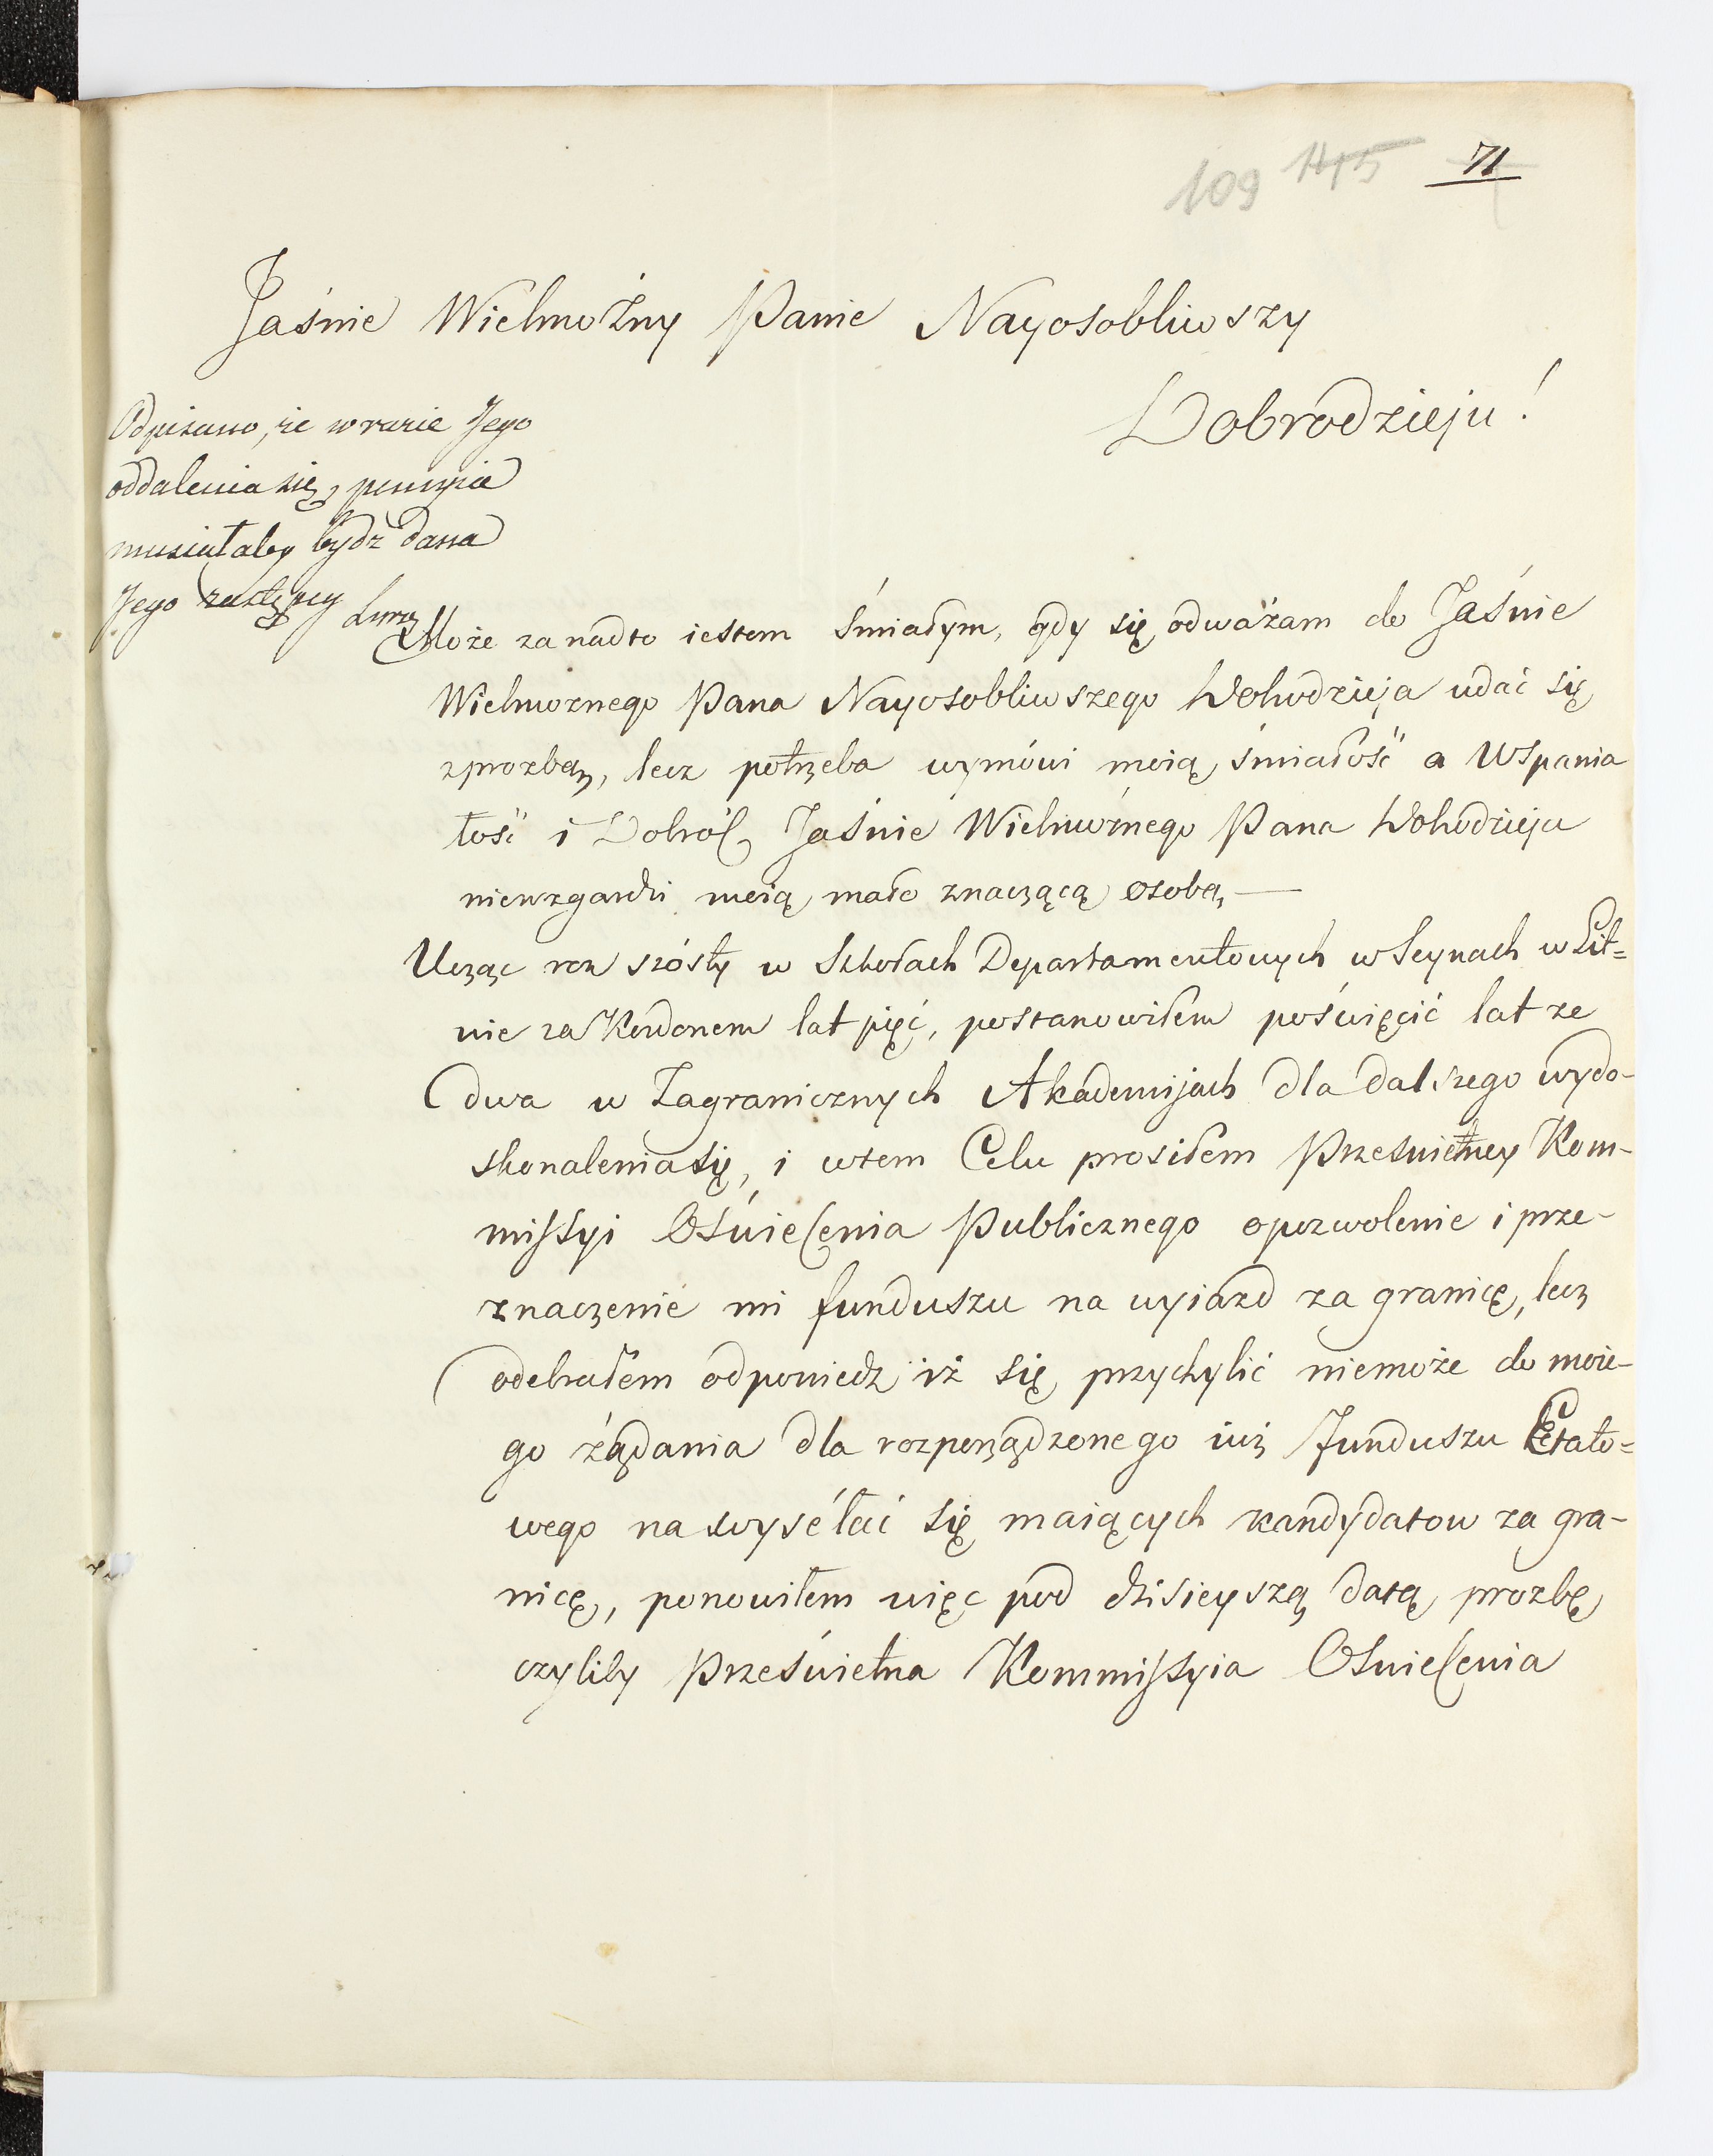 109 115 71
Jaśnie Wielmożny Panie Nayosobliwszy
Dobrodzieju!
Odpisano, że w razie Jego
oddalenia się, pensyia
musiałaby bydź dana
Jego zastępcy
Może zanadto iestem śmiałym, gdy się odważam do Jaśnie
Wielmoznego Pana Nayosobliwszego Dobrodzieja udać się
zprozbą, lecz potrzeba wymówi moią śmiałość a Wspania
łość i Dobroć Jaśnie Wielmożnego Pana Dobrodzieja
niewzgardzi moią mało znaczącą osobą, —
Ucząc rok szósty w Szkołach Departamentowych w Seynach w Lit=
wie za Kordonem lat pięć, postanowiłem poświęcić lat ze
dwa w Zagranicznych Akademijach dla dalszego wydo-
skonalenia się, i wtem Celu prosiłem Prześwietney Kom-
missyi Oświecenia Publicznego opozwolenie i prze-
znaczenie mi funduszu na wyiazd za granicę, lecz
odebrałem odpowiedz iż się przychylić niemoże do moie-
go żądania dla rozporządzonego iuż Funduszu Etato=
wego na wyséłać się maiących kandydatow za gra-
nicę, ponowiłem więc pod dzisieyszą datą prozbę
czyliby Prześwietna Kommissyia Oświecenia